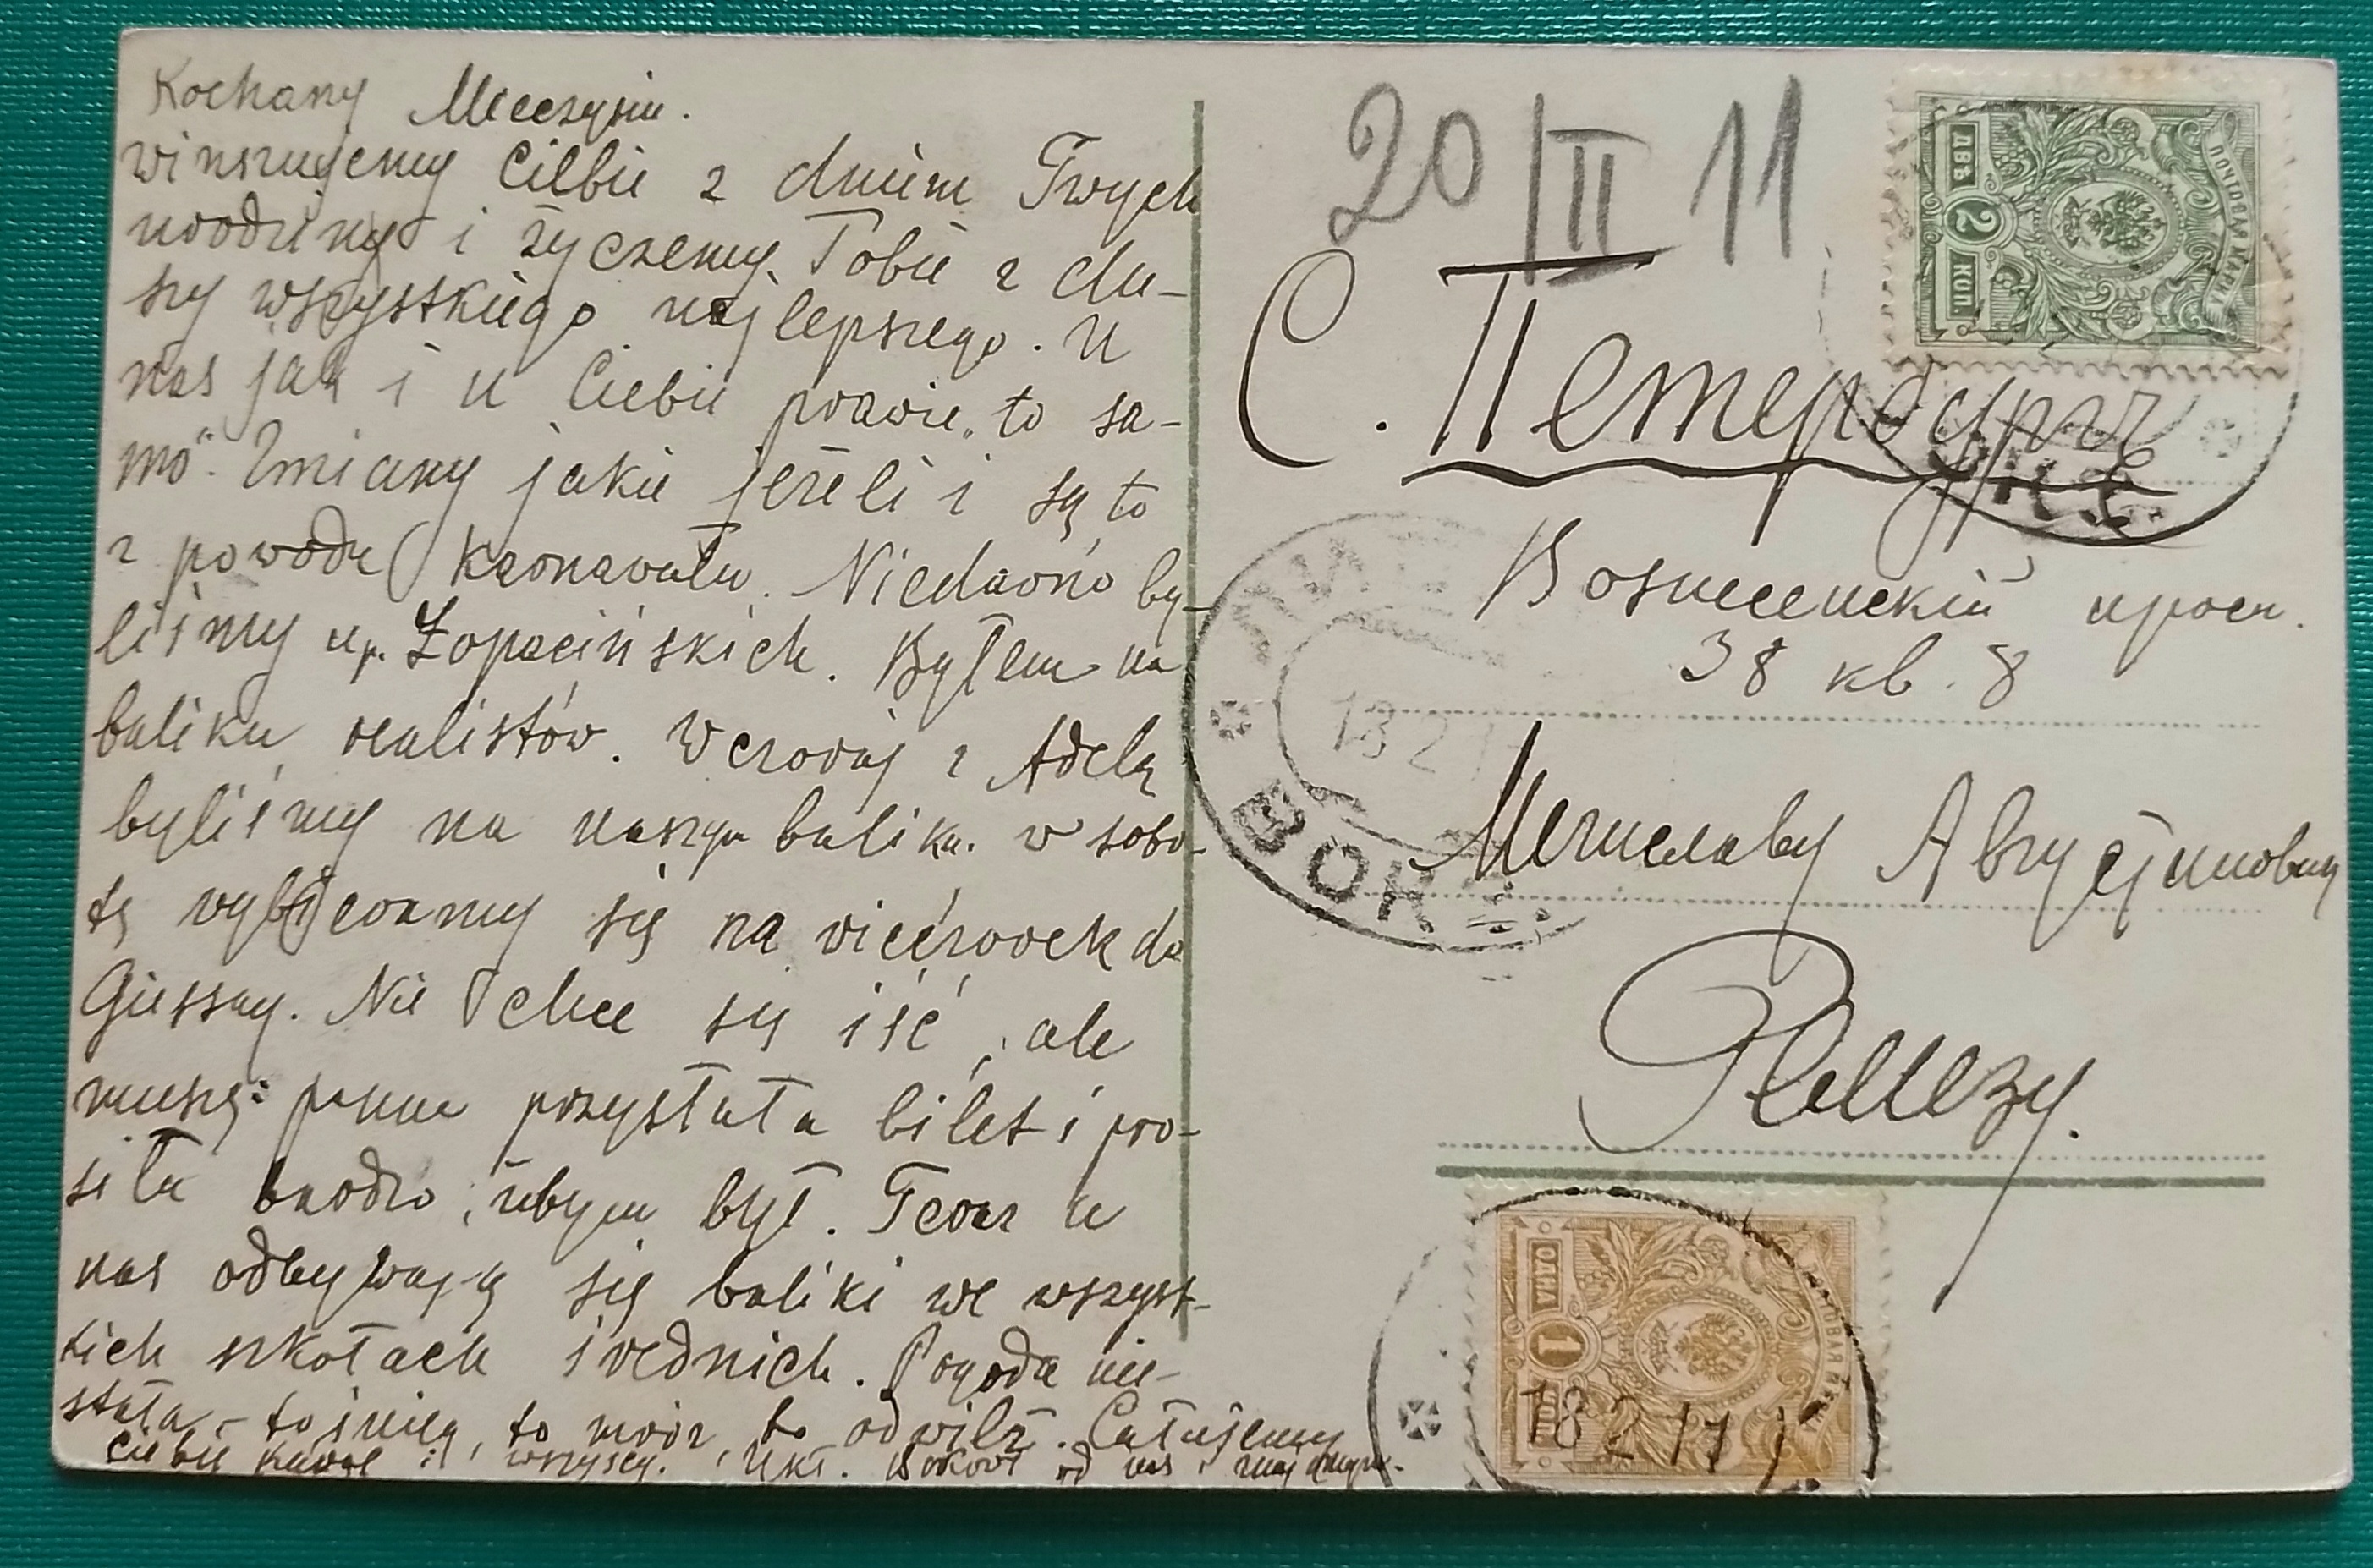 Kochany Mieczysiu.
winszujemy Ciebie z dniem Twych
urodziny i życzemy Tobie z du-
szy wszystkiego najlepszego. U
nas jak i u Ciebie prawie „to sa-
mo". Zmiany jakie jeżeli i są to
z powodu karnawału. Niedawno by-
liśmy u p. Łopacińskich. Byłem na
baliku realistów. Wczoraj z Adelą
byliśmy na naszym baliku. w sobo-
tę wybieramy się na wieczorek do
Nie chce się iść, ale
muszę: panna przysłała bilet i pro-
siła bardzo, żebym był. Teraz u
nas odbywają się baliki we wszyst-
kich szkołach średnich. Pogoda nie-
stała, - to śnieg, to mróz, to odwilż. Całujemy
Ciebie wszyscy. od nas
20/II 11
С. Петербург
Вознесенскій просп.
38 кв. 8
Мечиславу Августиновичу
ПОЧТОВАЯ МАРКА
ДВѢ 2 КОП.
ЛИ
18 2
ВОК
ОДНА 1 КОП.
ПОЧТОВАЯ МАРКА
18 2 11